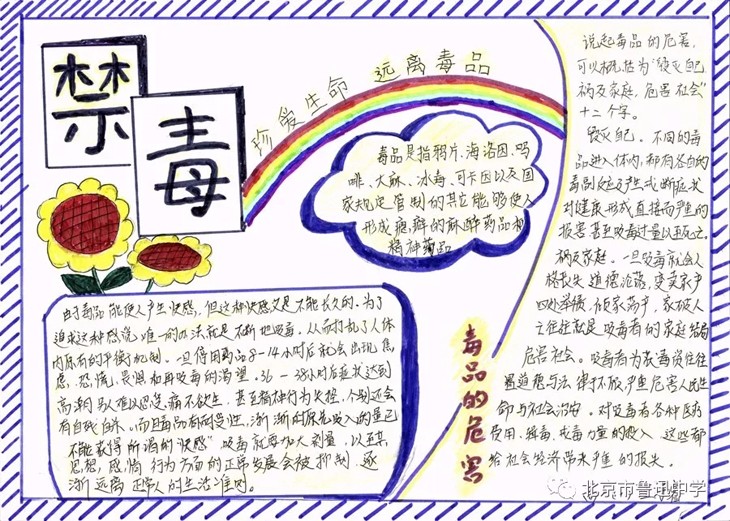 禁
毒
珍爱生命 远离毒品
毒品是指鸦片、海洛因、吗
啡、大麻、冰毒、可卡因以及国
家规定管制的其它能够使人
形成瘾癖的麻醉药品和
精神药品
由于毒品能使人产生快感，但这种快感又是不能长久的，为了
追求这种感觉唯一的办法就是不断地吸毒。从而打乱了人体
内原有的平衡机制。一旦停用毒品8-14小时后就会出现焦
虑、恐慌、畏惧和再吸毒的渴望，36-38小时后症状达到
高潮，难以忍受，痛不欲生，甚至精神行为失控，个别还会
有自残自杀，而且毒品有耐受性，渐渐的原先吸入的量已
不能获得所渴的“快感”吸毒就要加大剂量，以至其
思想，感情，行为方面的正常发展会被抑制，逐
渐远离正常人的生活准则。
毒品的危害
说起毒品的危害，
可以概括为“毁灭自己
祸及家庭，危害社会”
十二个字。
毁灭自己。不同的毒
品进入体内，都有各自的
毒副反应及产生戒断症状
对健康形成直接而严重的
损害甚至吸毒过量以至死亡。
祸及家庭。一旦吸毒就会人
格丧失 道德沦落，变卖家产
四处举债，倾家荡产，家破人
亡往往就是吸毒者的家庭结局
危害社会。吸毒者为获毒资往往
置道德与法律于不顾严重危害人民生
命与社会治安。对吸毒者各种医药
费用、缉毒、戒毒力量的投入 这些都
给社会经济带来严重的损失。
北京市鲁迅中学